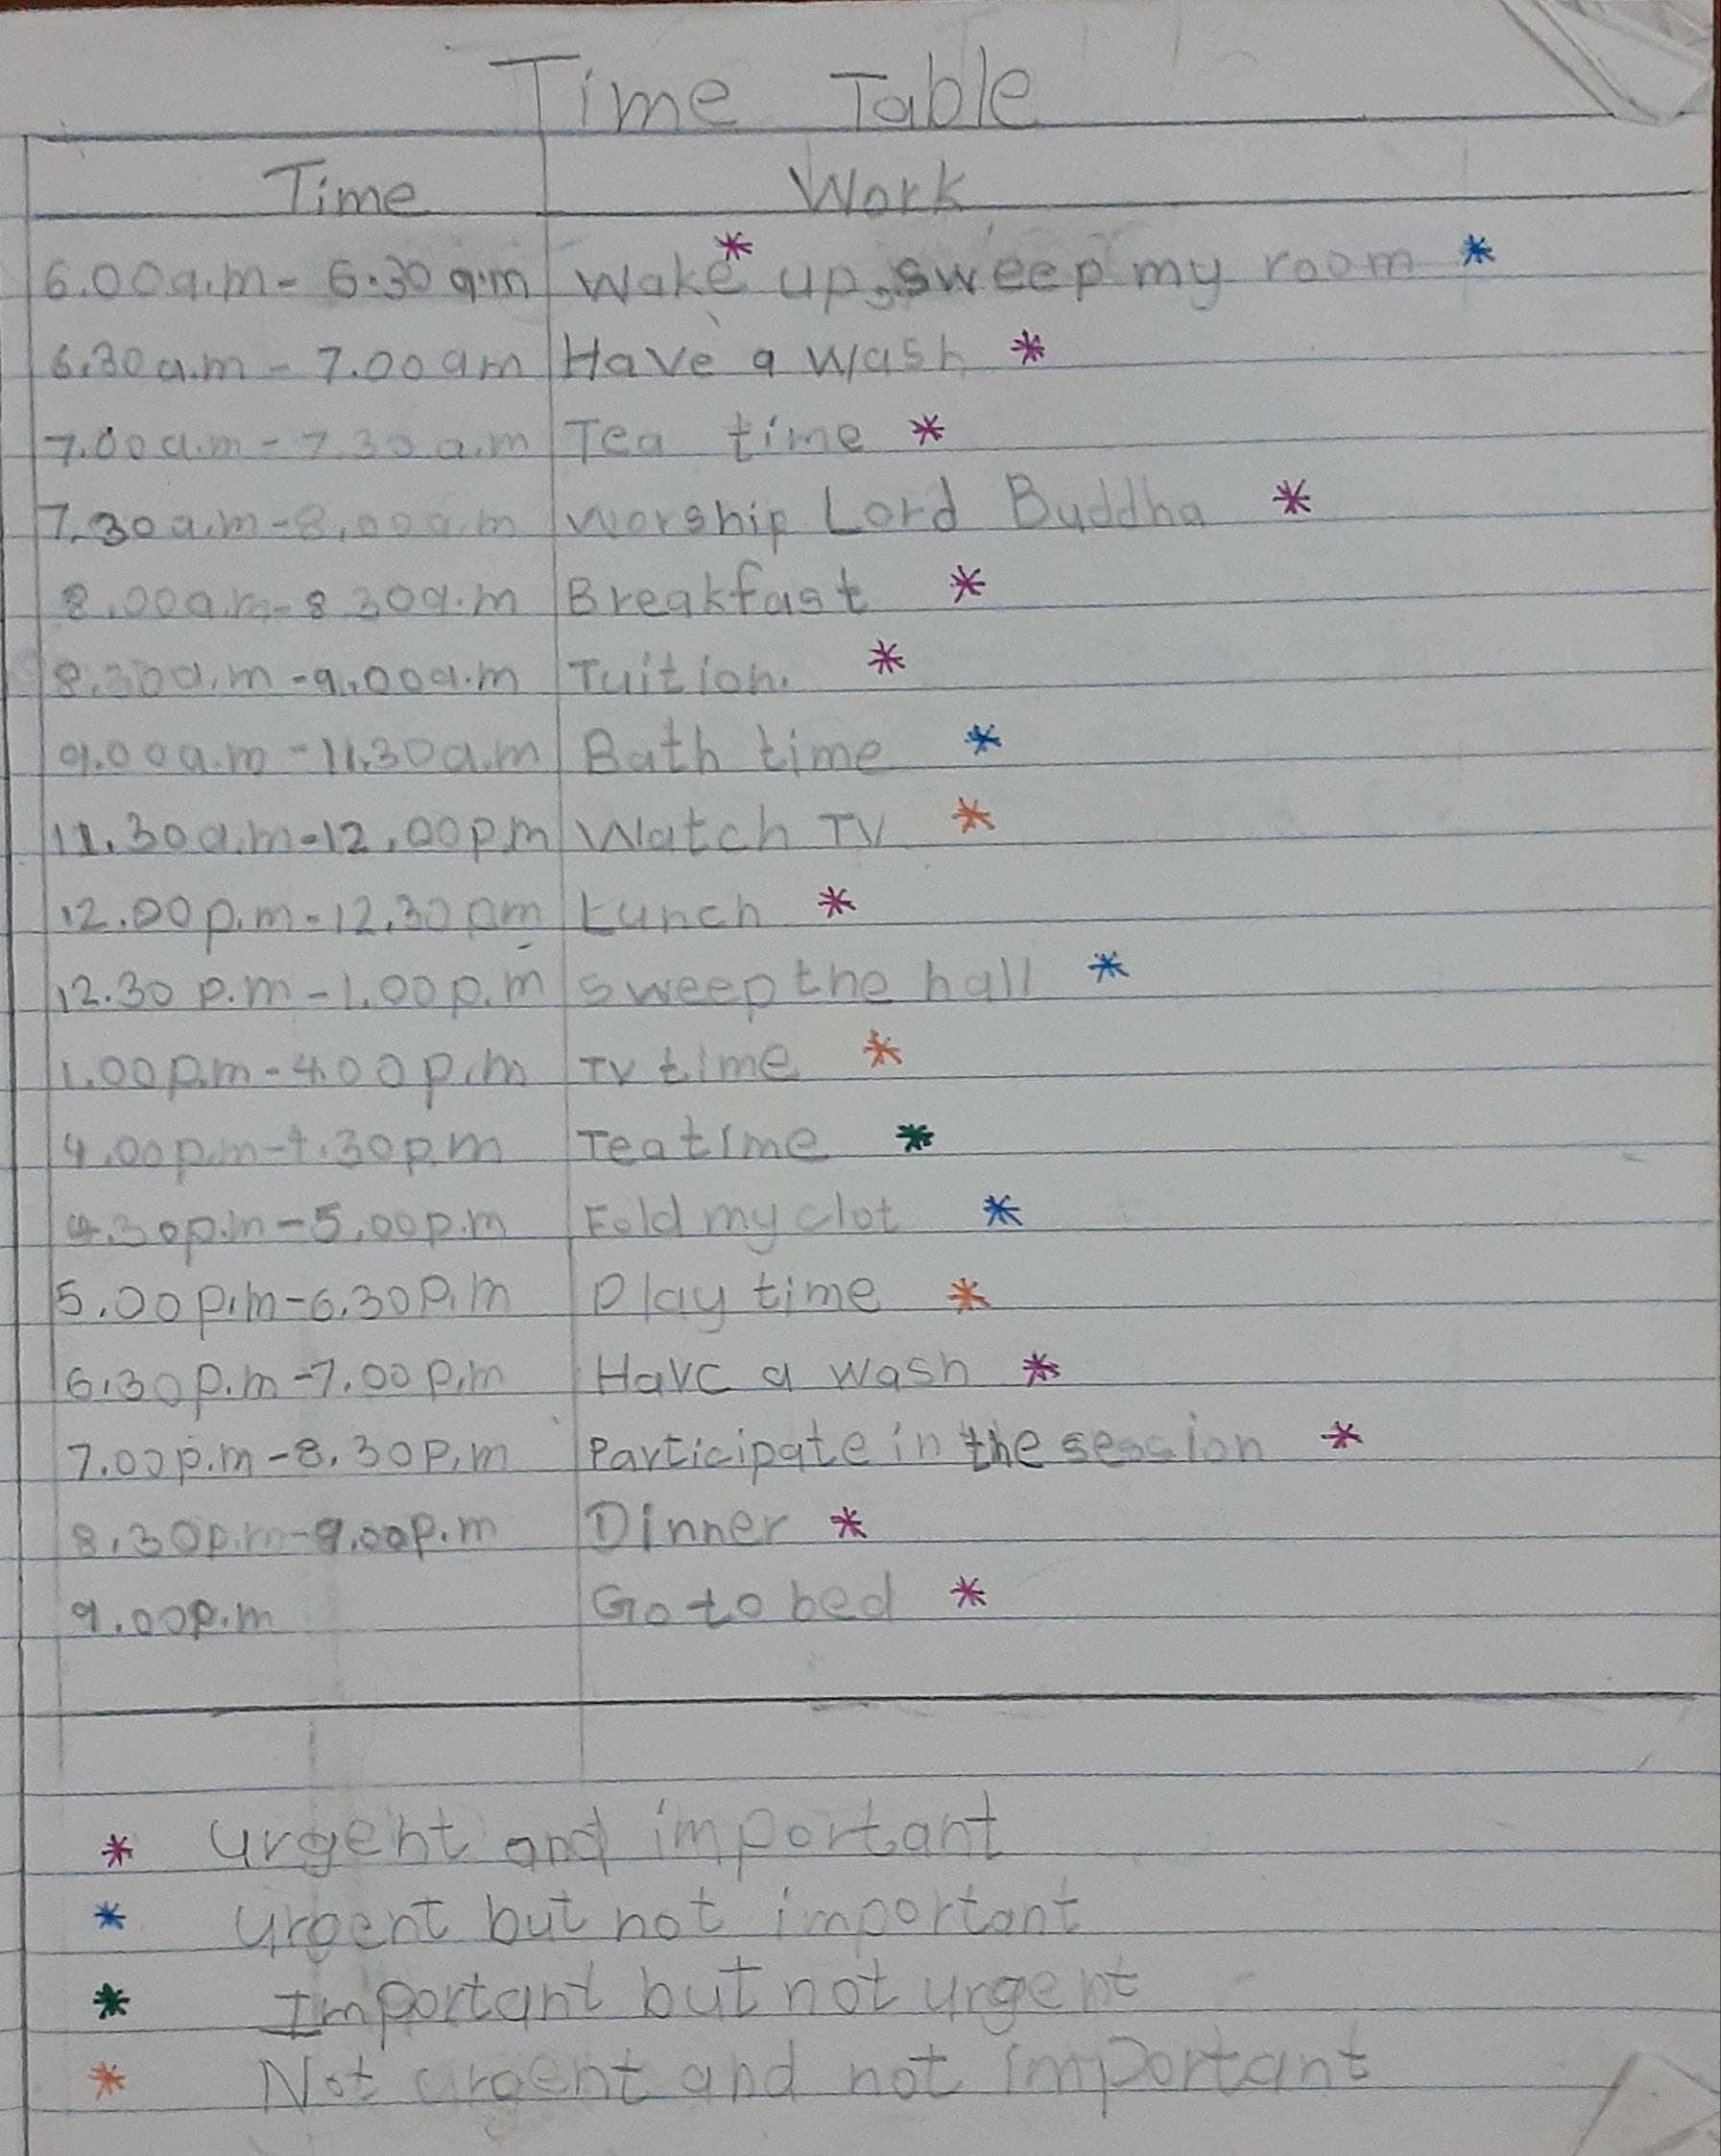 Time Table
Time Work
6.00a.m- 6.30 a.m Wake* up, sweep my room *
6.30a.m - 7.00 am Have a wash *
7.00a.m - 7.30 a.m Tea time *
7.30a.m-8.00a.m Worship Lord Buddha *
8.00a.m-8 30a.m Breakfast *
8.30a.m -9.00a.m Tuition. *
9.00a.m -11.30a.m Bath time *
11.30a.m-12.00pm Watch TV *
12.00p.m-12.30pm Lunch *
12.30 p.m-1.00p.m sweep the hall *
1.00p.m-4.00p.m TV time *
4.00p.m-4.30pm Tea time *
4.30p.m-5.00p.m Fold my clot *
5.00p.m-6.30P.m Play time *
6.30p.m-7.00p.m Have a wash *
7.00p.m-8.30P.m Participate in the session *
8.30p.m-9.00p.m Dinner *
9.00p.m Go to bed *
* urgent and important
* urgent but not important
* Important but not urgent
* Not urgent and not important